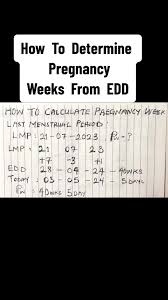 How To Determine
Pregnancy
Weeks From EDD
HOW TO CALCULATE PREGNANCY WEEK
LAST MENSTRUAL PERIOD:
LMP: 21-07-2023 PW-?
LMP: 21 07 23
+7 -3 +1
EDD 28-04-24-40WKS
TODAY: 03-05-24-5DAYS
PW 40WKS 5DAY